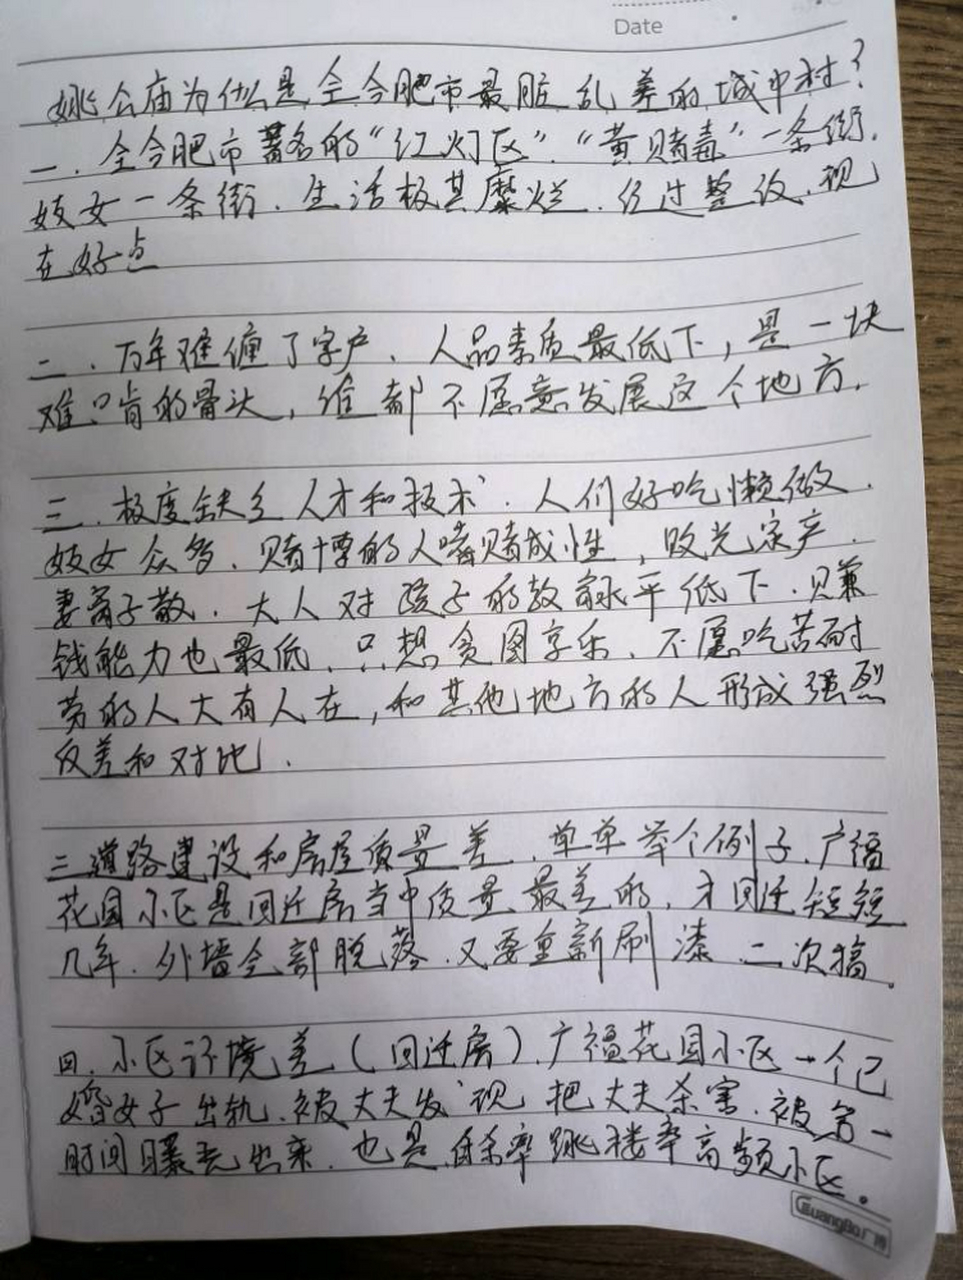 Date
姚公庙为什么是全合肥市最脏乱差的城中村？
一、全合肥市著名的“红灯区”、“黄赌毒”一条街、
妓女一条街、生活极其糜烂、经过整改、现
在好点
二、万年难缠了字户、人品素质最低下，是一块
难啃的骨头，谁都不愿意发展这个地方，
三、极度缺乏人才和技术、人们好吃懒做、
妓女众多、赌博的人嗜赌成性，败光家产、
妻离子散、大人对孩子的教育水平低下、赚
钱能力也最低、只想贪图享乐、不愿吃苦耐
劳的人大有人在，和其他地方的人形成强烈
反差和对比、
三道路建设和房屋质量差、单单举个例子、广福
花园小区是回迁房当中质量最差的，才回迁短短
几年、外墙全部脱落、又要重新刷漆、二次搞、
四、小区环境差（回迁房）、广福花园小区一个已
婚女子出轨、被丈夫发现、把丈夫杀害、被第一
时间曝光出来、也是自杀率跳楼率高频小区。
GuangBo广博